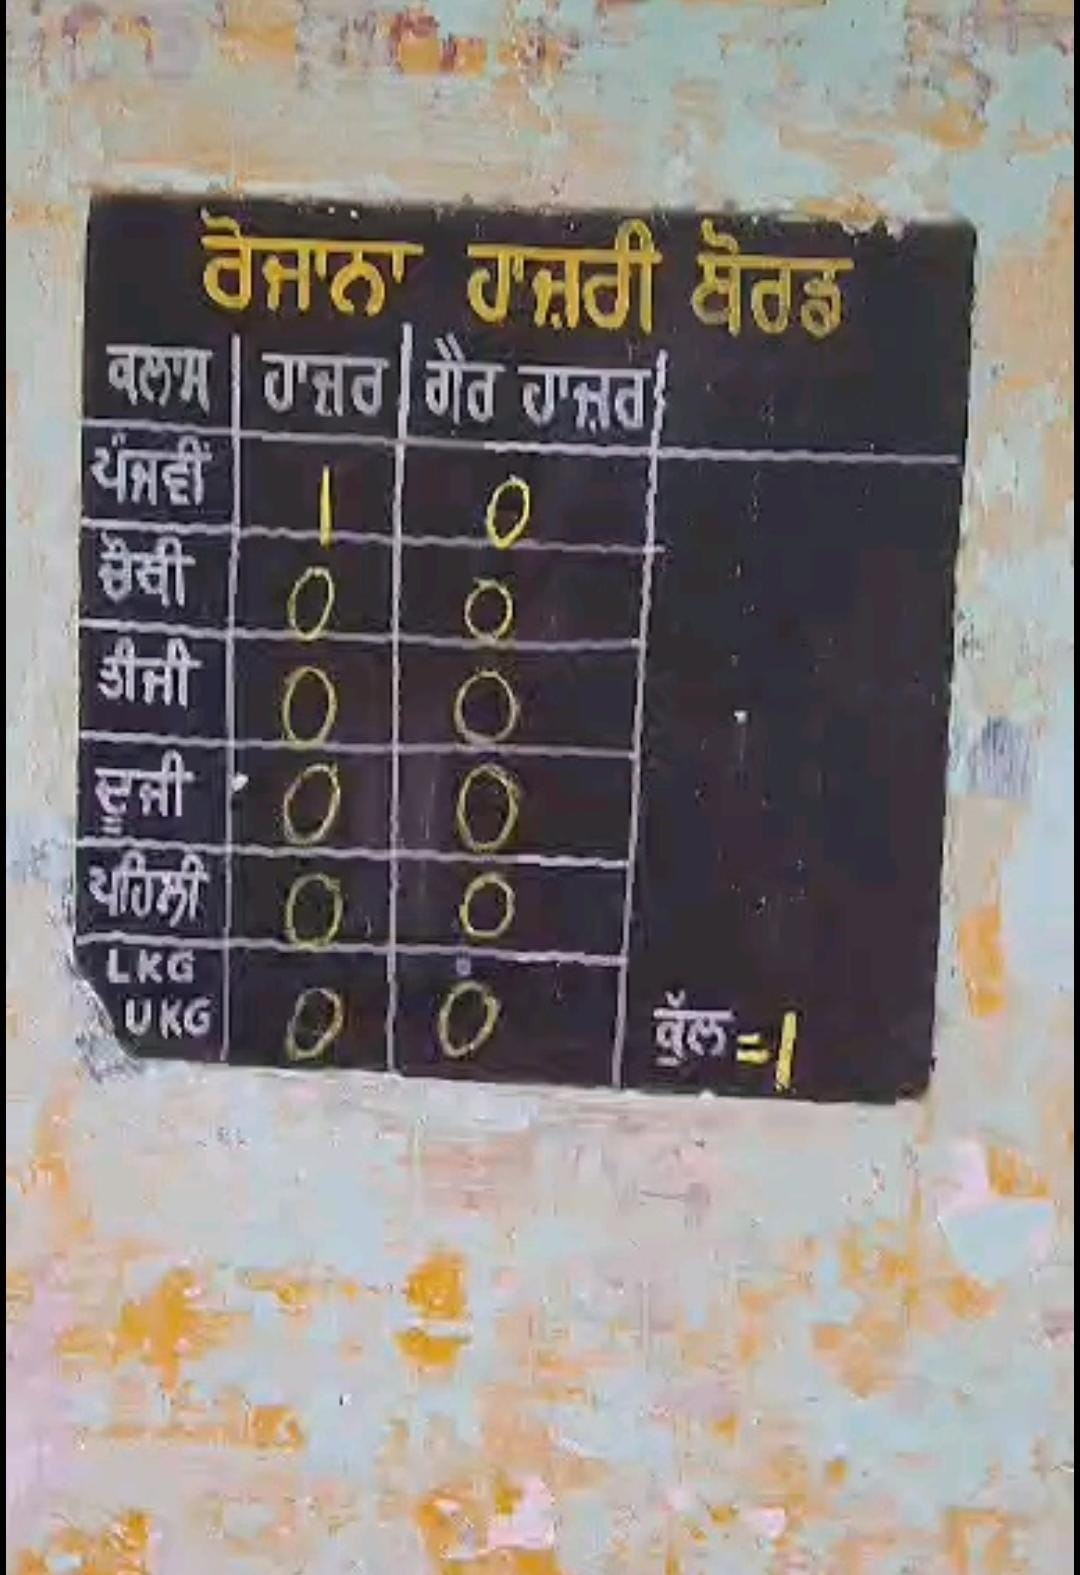 ਰੋਜਾਨਾ ਹਾਜ਼ਰੀ ਬੋਰਡ
ਕਲਾਸ ਹਾਜ਼ਰ ਗੈਰ ਹਾਜ਼ਰ
ਪੰਜਵੀਂ 1 0
ਚੌਥੀ 0 0
ਤੀਜੀ 0 0
ਦੂਜੀ 0 0
ਪਹਿਲੀ 0 0
LKG
UKG 0 0
ਕੁੱਲ = 1